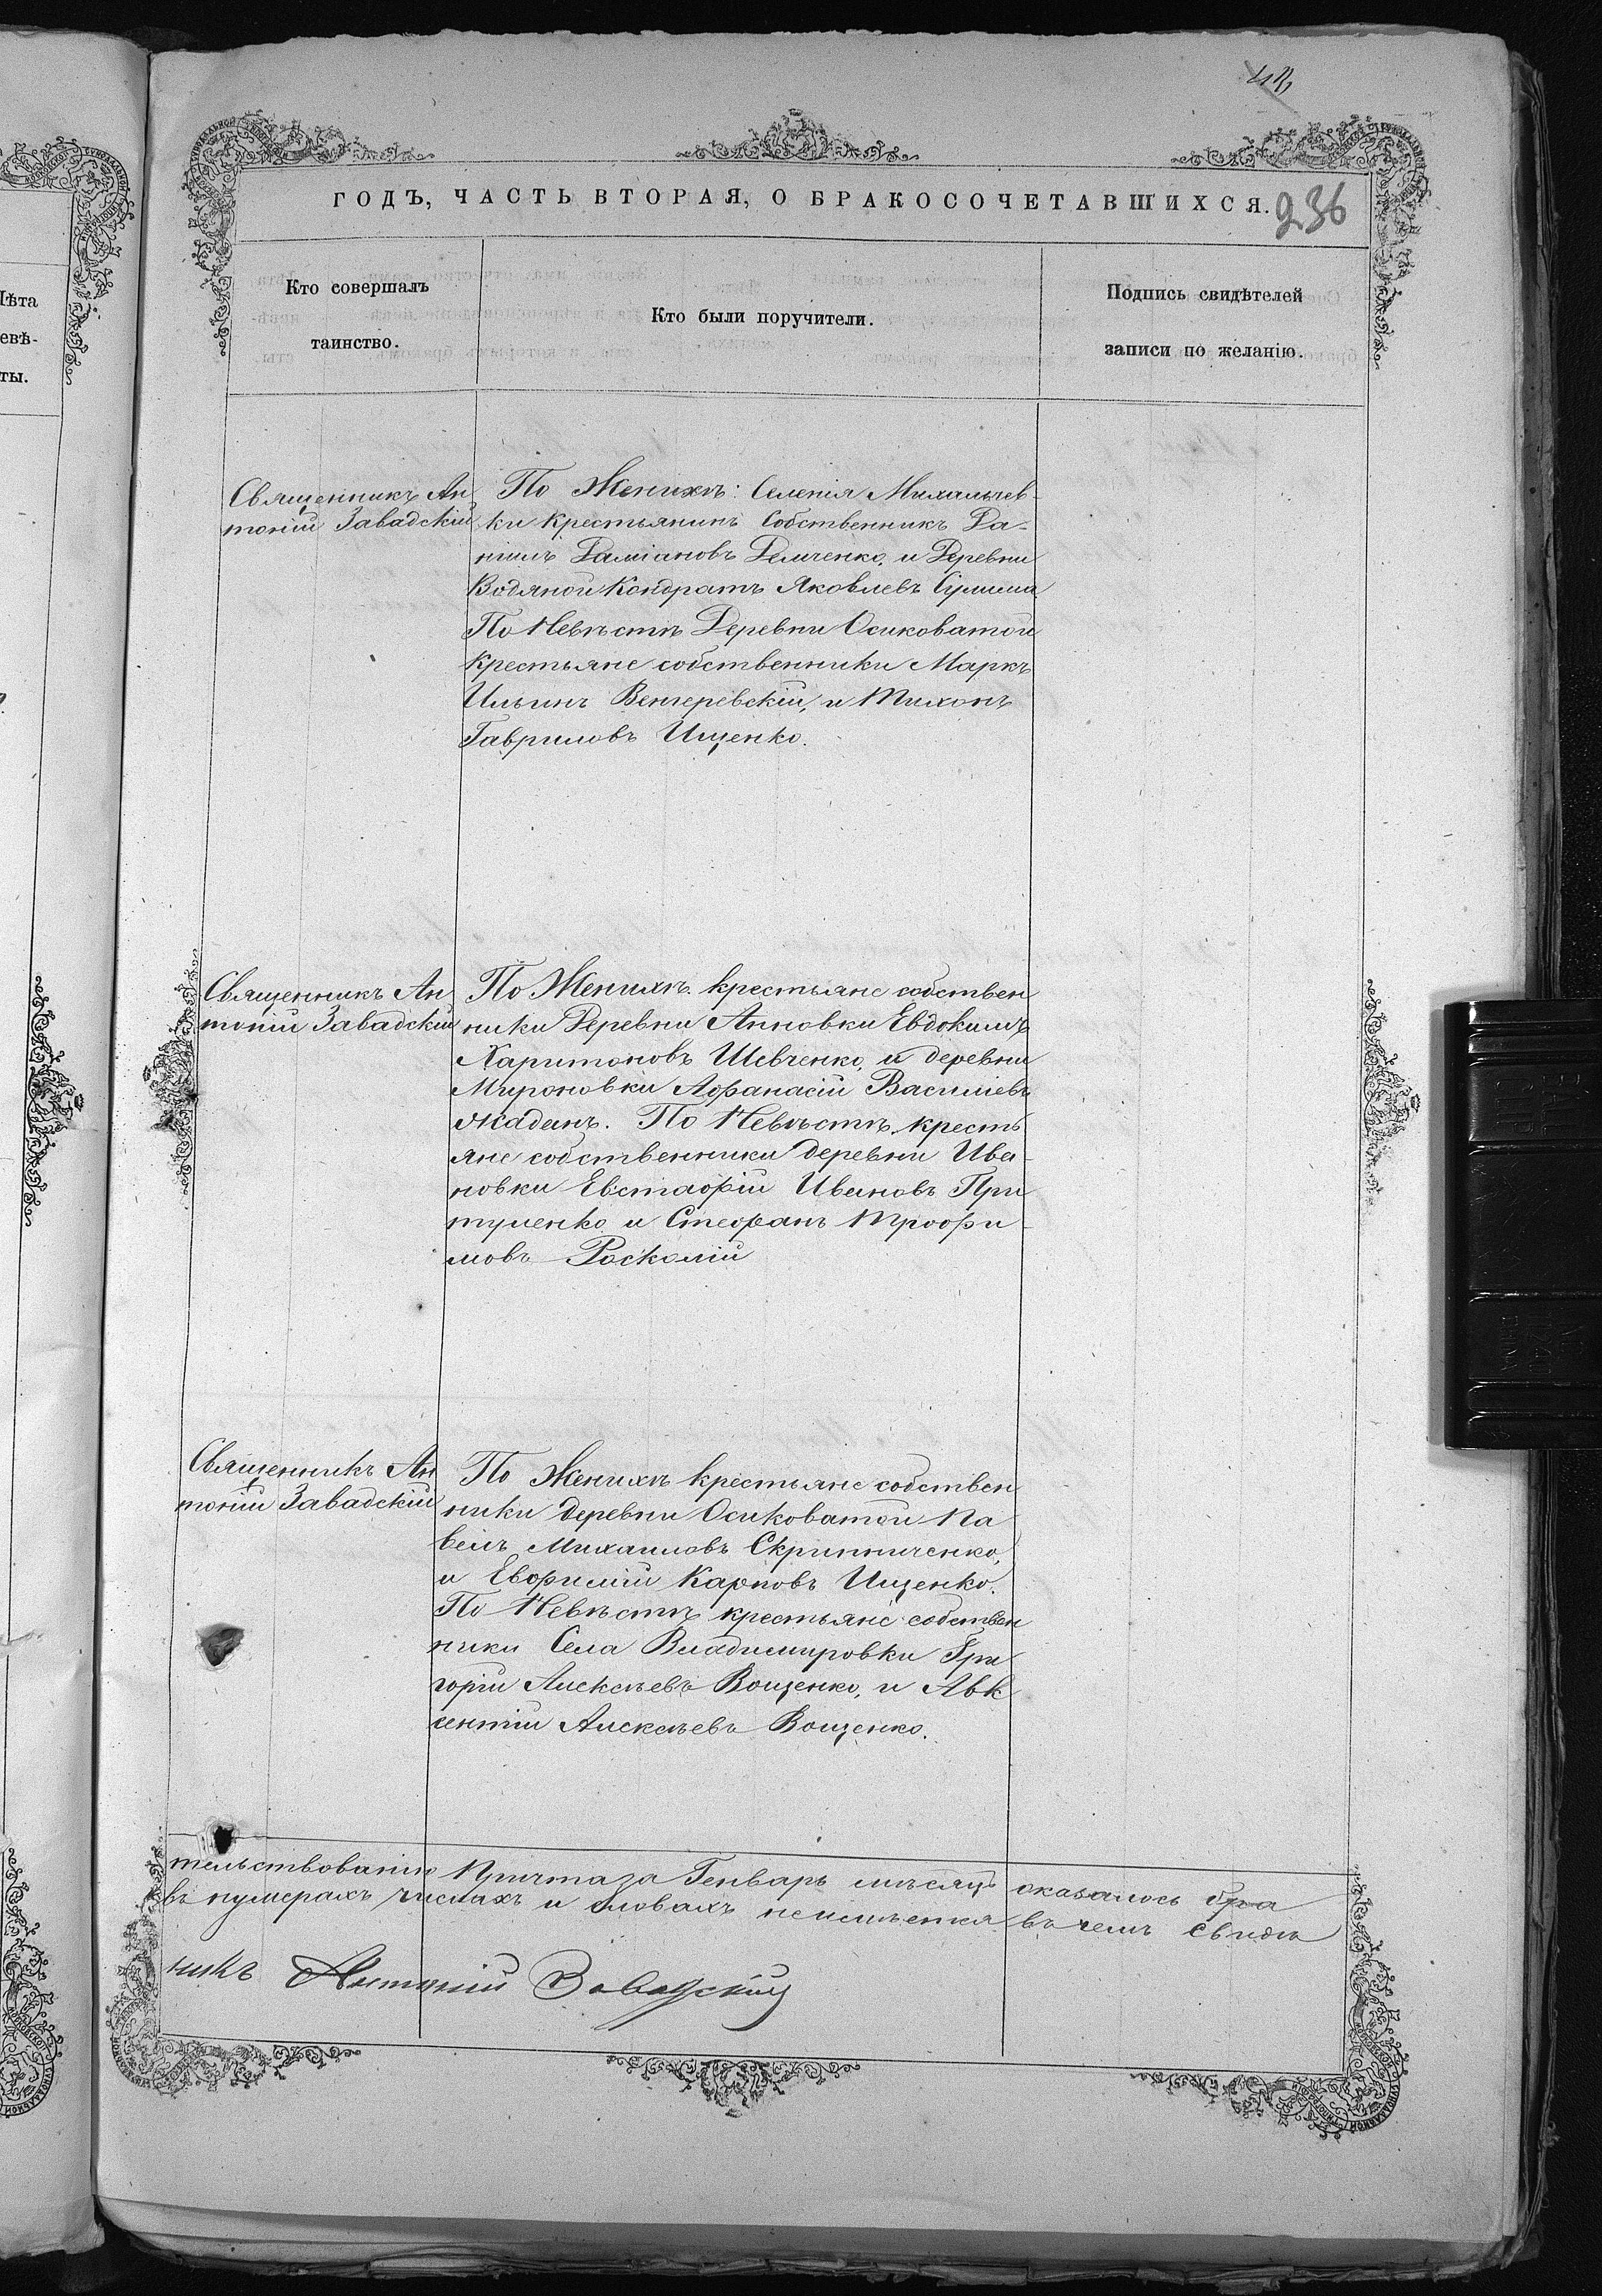 236
ГОДЪ, ЧАСТЬ ВТОРАЯ, О БРАКОСОЧЕТАВШИХСЯ.
Кто совершалъ
таинство.
Кто были поручители.
Подпись свидѣтелей
записи по желанію.
Священникъ Ан
тоній Завадскій
По Женихѣ: Селенія Михальчев-
ки Крестьянинъ Собственникъ Да-
ніилъ Даміановъ Демченко, и Деревни
Водяной Кондратъ Яковлевъ
По Невѣстѣ Деревни Осиковатой
Крестьяне собственники Маркъ
Ильинъ Венгеревскій, и Тихонъ
Гавриловъ Ищенко.
Священникъ Ан
тоній Завадскій
По Женихѣ крестьяне собствен
ники Деревни Анновки Евдокимъ
Харитоновъ Шевченко, и деревни
Мироновки Афанасій Василіевъ
Жаданъ. По Невѣстѣ кресть
яне собственники деревни Ива-
новки Евстафій Ивановъ При
туленко и Стефанъ Трофи-
мовъ Росколій
Священникъ Ан
тоній Завадскій
По Женихѣ крестьяне собствен
ники деревни Осиковатой Па
велъ Михаиловъ Скрипниченко,
и Евфимій Карповъ Ищенко.
По Невѣстѣ крестьяне собствен
ники Села Владимировки Гри
горій Алексѣевъ Вощенко, и Авк
сентій Алексѣевъ Вощенко.
тельствованію Причта за Генварь мѣсяцъ оказалось бра
въ нумерахъ числахъ и словахъ неимѣется въ чемъ свидѣ
никъ Антоній Завадскій
Лѣта
евѣ-
ты.